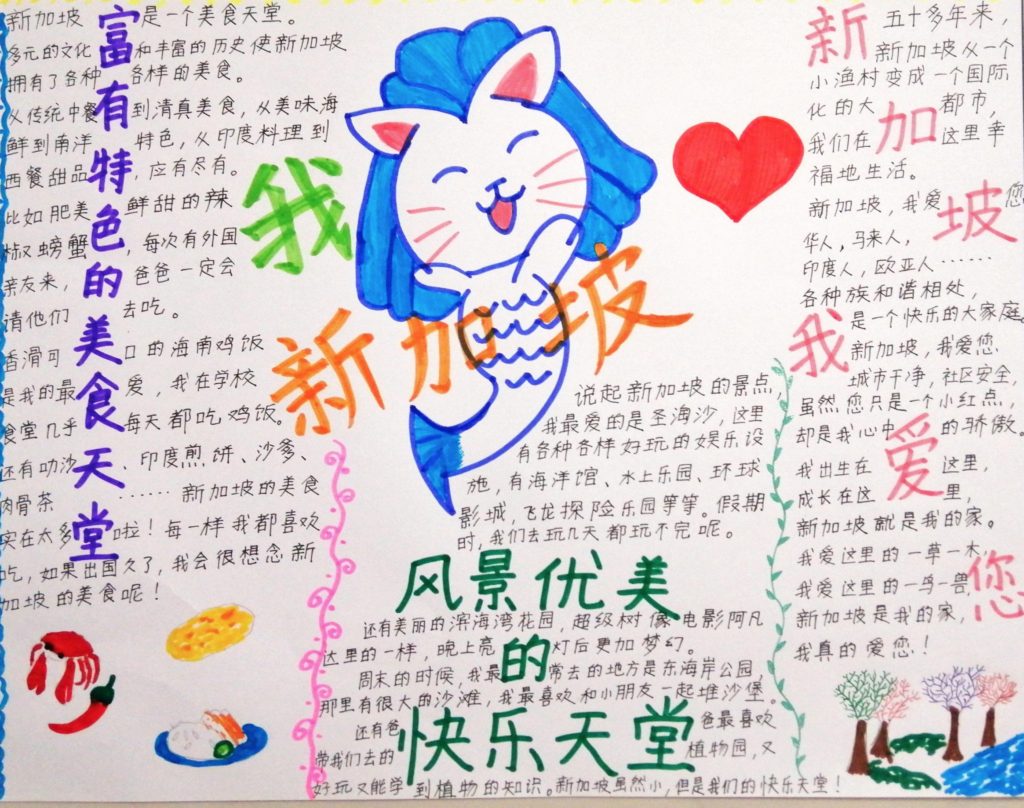 富有特色的美食天堂
新加坡是一个美食天堂。
多元的文化和丰富的历史使新加坡
拥有了各种各样的美食。
从传统中餐到清真美食，从美味海
鲜到南洋特色，从印度料理到
西餐甜品，应有尽有。
比如肥美鲜甜的辣
椒螃蟹，每次有外国
亲友来，爸爸一定会
请他们去吃。
香滑可口的海南鸡饭
是我的最爱，我在学校
食堂几乎每天都吃鸡饭。
还有叻沙、印度煎饼、沙爹、
肉骨茶……新加坡的美食
实在太多啦！每一样我都喜欢
吃，如果出国久了，我会很想念新
加坡的美食呢！
我
新加坡
说起新加坡的景点，
我最爱的是圣淘沙，这里
有各种各样好玩的娱乐设
施，有海洋馆、水上乐园、环球
影城，飞龙探险乐园等等。假期
时，我们去玩几天都玩不完呢。
风景优美
的
快乐天堂
还有美丽的滨海湾花园，超级树像电影阿凡
达里的一样，晚上亮灯后更加梦幻。
周末的时候，我最常去的地方是东海岸公园，
那里有很大的沙滩，我最喜欢和小朋友一起堆沙堡。
还有爸爸最喜欢
带我们去的植物园，又
好玩又能学到植物的知识。新加坡虽然小，但是我们的快乐天堂！
新加坡我爱您
五十多年来，
新加坡从一个
小渔村变成一个国际
化的大都市，
我们在这里幸
福地生活。
新加坡，我爱您
华人，马来人，
印度人，欧亚人……
各种族和谐相处，
是一个快乐的大家庭。
新加坡，我爱您
城市干净，社区安全，
虽然您只是一个小红点，
却是我心中的骄傲。
我出生在这里，
成长在这里，
新加坡就是我的家。
我爱这里的一草一木，
我爱这里的一鸟一兽，
新加坡是我的家，
我真的爱您！